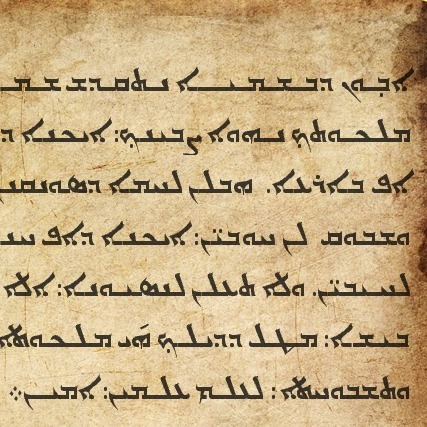 ܐܒܘܢ ܕܒܫܡܝܐ ܢܬܩܕܫ ܫܡ
ܡܠܟܘܬܟ ܢܗܘܐ ܨܒܝܢܟ: ܐܝܟܢܐ ܕ
ܐܦ ܒܐܪܥܐ. ܗܒ ܠܢ ܠܚܡܐ ܕܣܘܢܩܢ
ܘܫܒܘܩ ܠܢ ܚܘܒ̈ܝܢ: ܐܝܟܢܐ ܕܐܦ ܚܢ
ܠܚܝܒ̈ܝܢ. ܘܠܐ ܬܥܠܢ ܠܢܣܝܘܢܐ: ܐܠܐ
ܒܝܫܐ: ܡܛܠ ܕܕܝܠܟ ܗܝ ܡܠܟܘܬܐ
ܘܬܫܒܘܚܬܐ: ܠܥܠܡ ܥܠܡܝܢ: ܐܡܝܢ܀